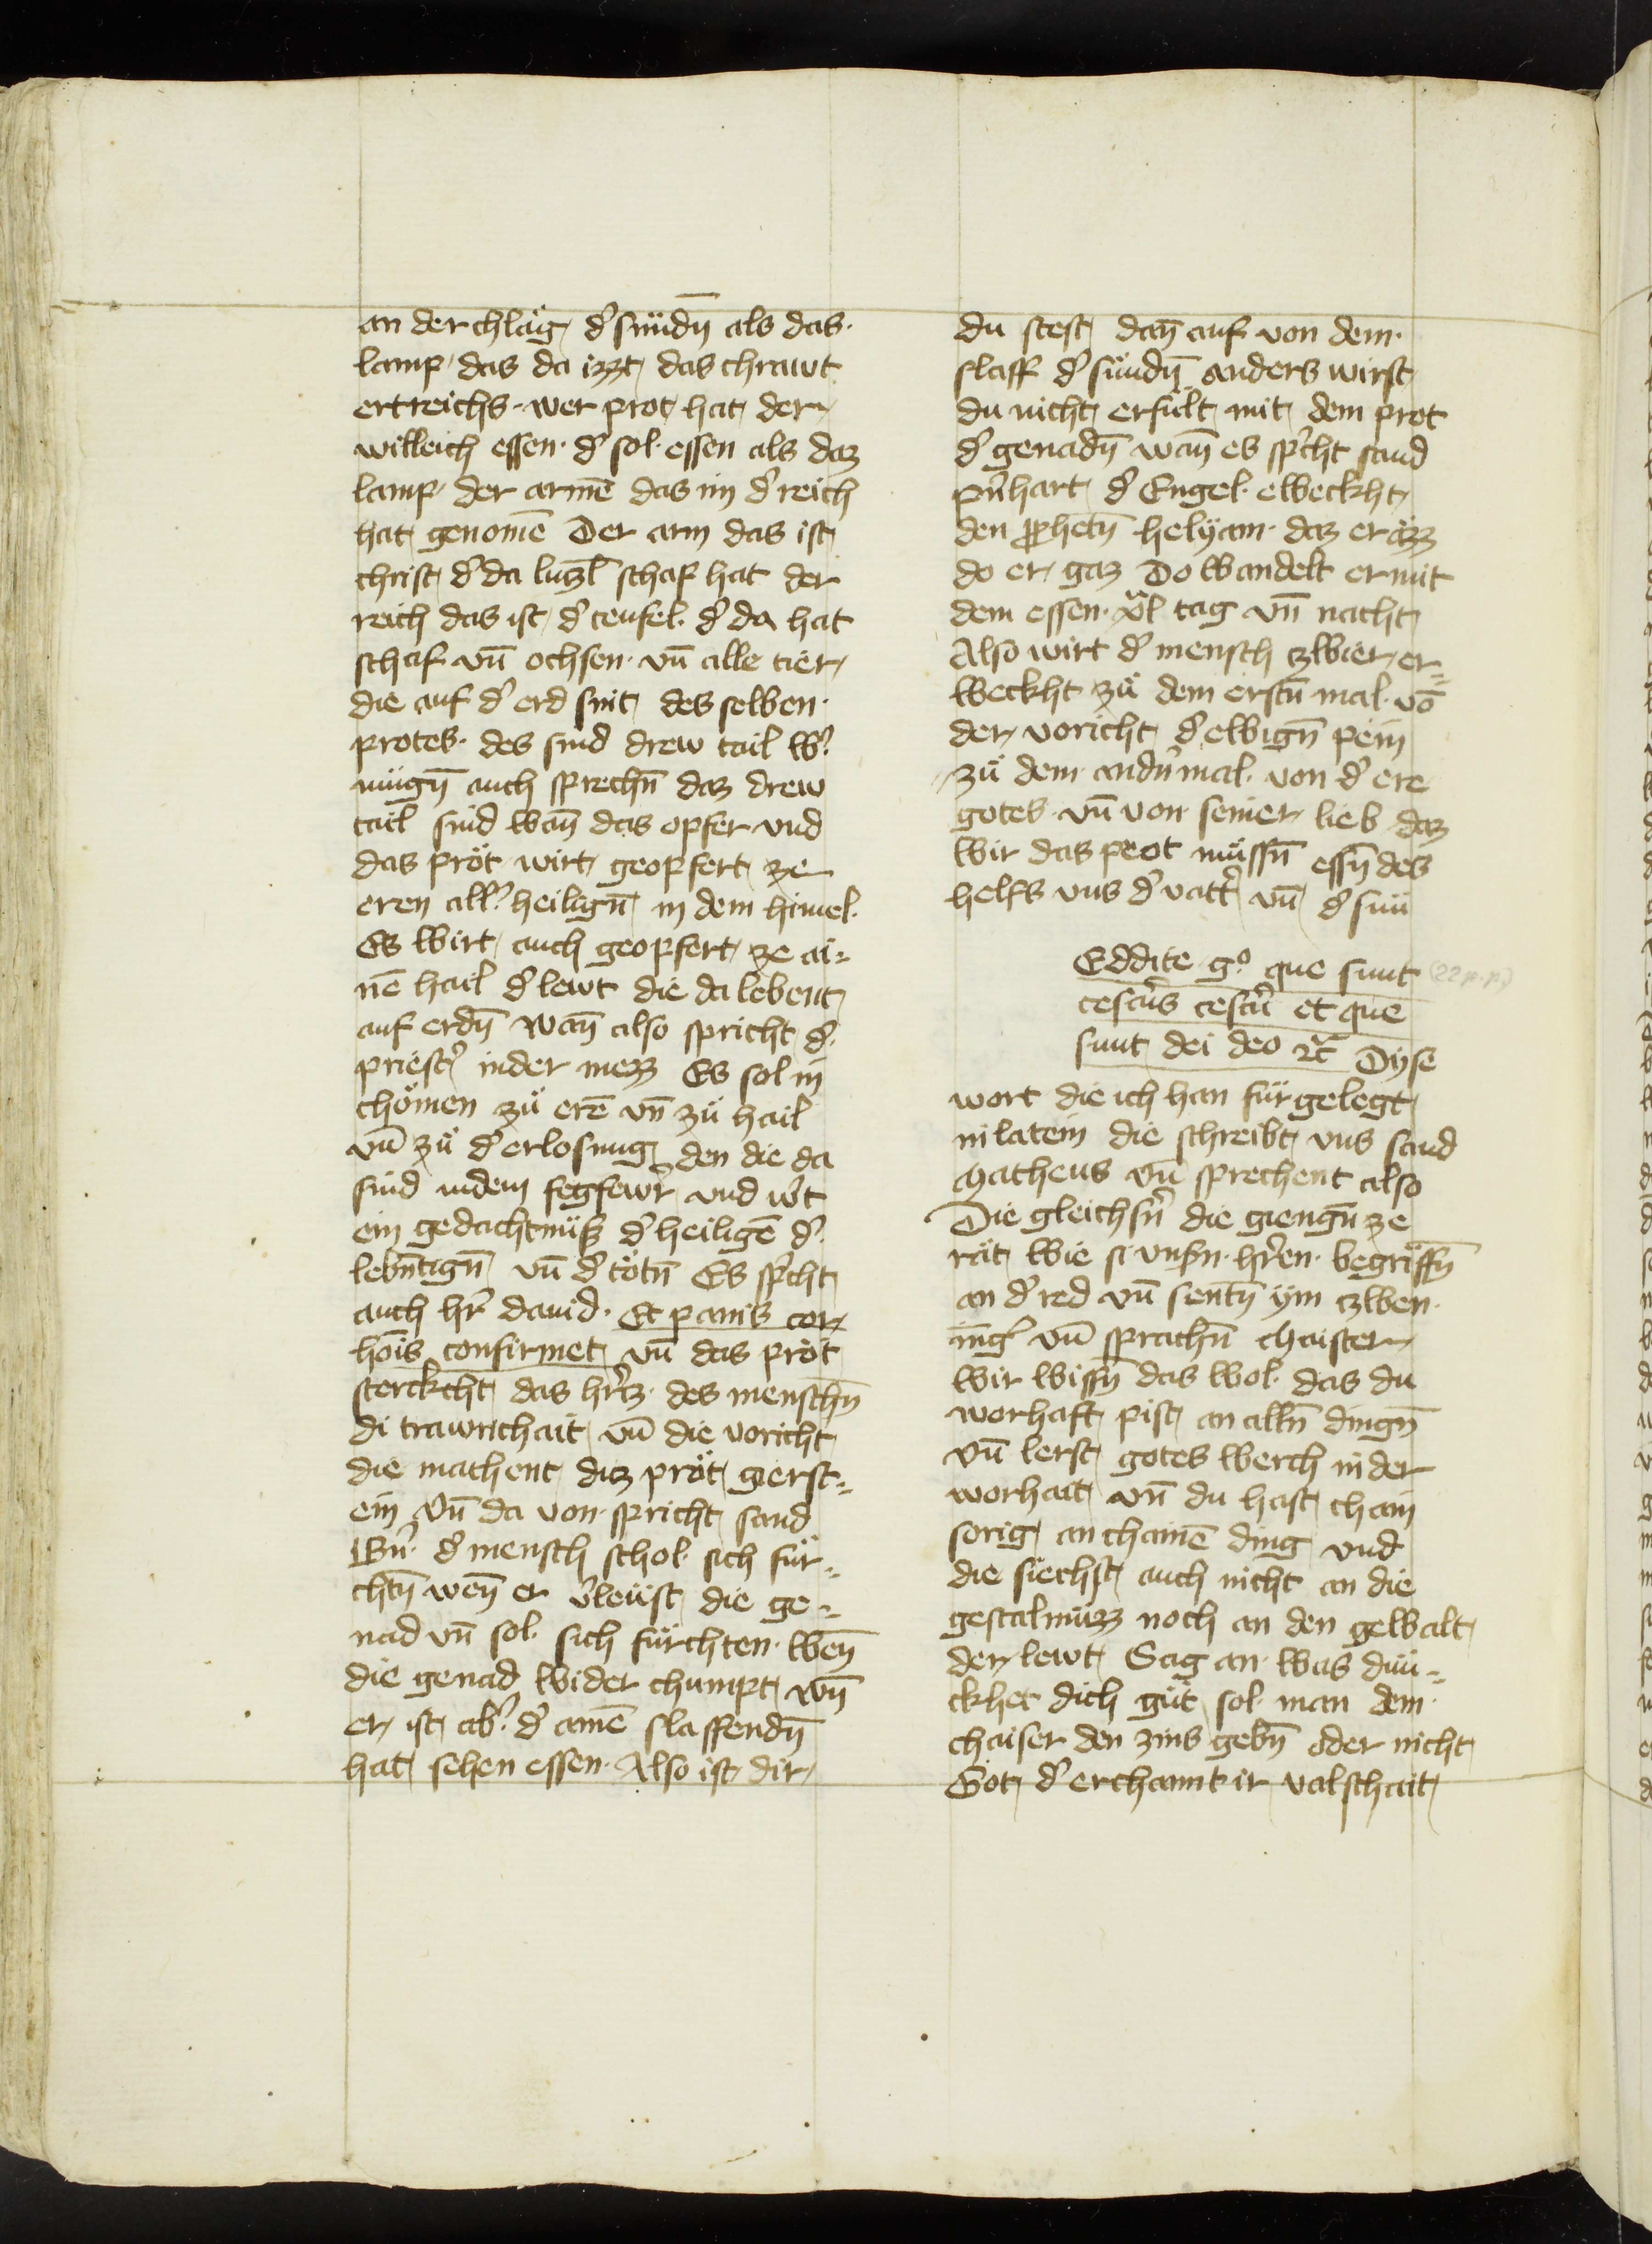 an der chlag d᾽ sündn̄ als das·
lamp· das da izzt das chrawt
ertreichs· wer prot hat der
willeich essen· d᾽ sol· essen als daz
lamp· der armē das im d᾽ reich
hat genomē Der arm das ist
christ d᾽ da luzl̄ schaf hat der
reich das ist d᾽ teufel· d᾽ da hat
schaf vn̄ ochsen· vn̄ alle tier
die auf d᾽ erd sint des selben·
protes· des sind drew tail w᾽
mügn̄ auch sprechn̄ daz drew
tail sind wan̄ das opfer vnd
das pröt wirt geopfert ze
eren all᾽ heilign̄ in dem himel·
Es wirt auch geopfert ze ai⸗
nē hail d᾽ lewt die da lebent
auf erdn̄ wan̄ also spricht d᾽
priest᾽ inder mezz Es sol in
chömen zü erē vn̄ zü hail
vn̄ zü d᾽ erlosung den die da
sind indem fegfewr᾽ vnd w᾽t
ein gedachtnüss d᾽ heiligē d᾽
lebn̄tign̄ vn̄ d᾽ tötn̄ Es sp᾽cht
auch hr᾽ dauid· Et panis cor
hōis confirmet vn̄ das pröt
sterckcht das hr᾽tz· des menschn̄
di trawrichait vn̄ die voricht
die machent diz pröt gerst⸗
ein Vn̄ da von spricht sand
Bn᾽ d᾽ mensch schol· sich für⸗
chtn̄ wen̄ er v᾽leüst die ge⸗
nad vn̄ sol· sich fürchten· wen̄
die genad wider chumpt wn̄
er ist ab᾽ d᾽ amē slaffendn̄
hat sehen essen· Also ist dir
du stest dan̄ auf von dem·
slaff d᾽ sündn̄ anders wirst
du nicht erfült mit dem prot
d᾽ genadn̄ wan̄ es sp᾽cht sand
pn᾽hart d᾽ Engel· eweckht
den ꝓphetn̄ helyam· daz er äzz
do er gaz Do wandelt er mit
dem essen· xl tag vn̄ nacht
Also wirt d᾽ mensch zwier er⸗
weckht zü dem erstn̄ mal· vō
der voricht d᾽ ewign̄ pein
zü dem andn᾽ mal· von d᾽ ere
gotes· vn̄ von seiner lieb daz
wir das prot müssn̄ essn̄ des
helfs vns d᾽ vatt᾽ vn̄ d᾽ sun
Eddite g° que sunt (22 p. p.)
cesar᾽s cesar᾽i et que
sunt dei deo ⁊c̄ Dyse
wort die ich han für gelegt
in latein die schreibt vns sand
Matheus vn̄ sprechent also
Die gleichsn᾽ die giengn̄ ze
rät wie si vnsn· hr᾽en· begriffn̄
an d᾽ red vn̄ sentn̄ ym zwen·
ing᾽ vn̄ sprachn̄ Maister
wir wissn̄ das wol· das du
worhaft pist an alln̄ dingn̄
vn̄ lerst gotes werch in der
worhait vn̄ du hast chain
sorig an chainē ding vnd
die siechst auch nicht an die
gestalnüzz noch an den gewalt
der lewt Sag an was dun⸗
ckhet dich güt sol· man dem·
chaiser den zins gebn̄ oder nicht
Got d᾽ erchannt ir valschait